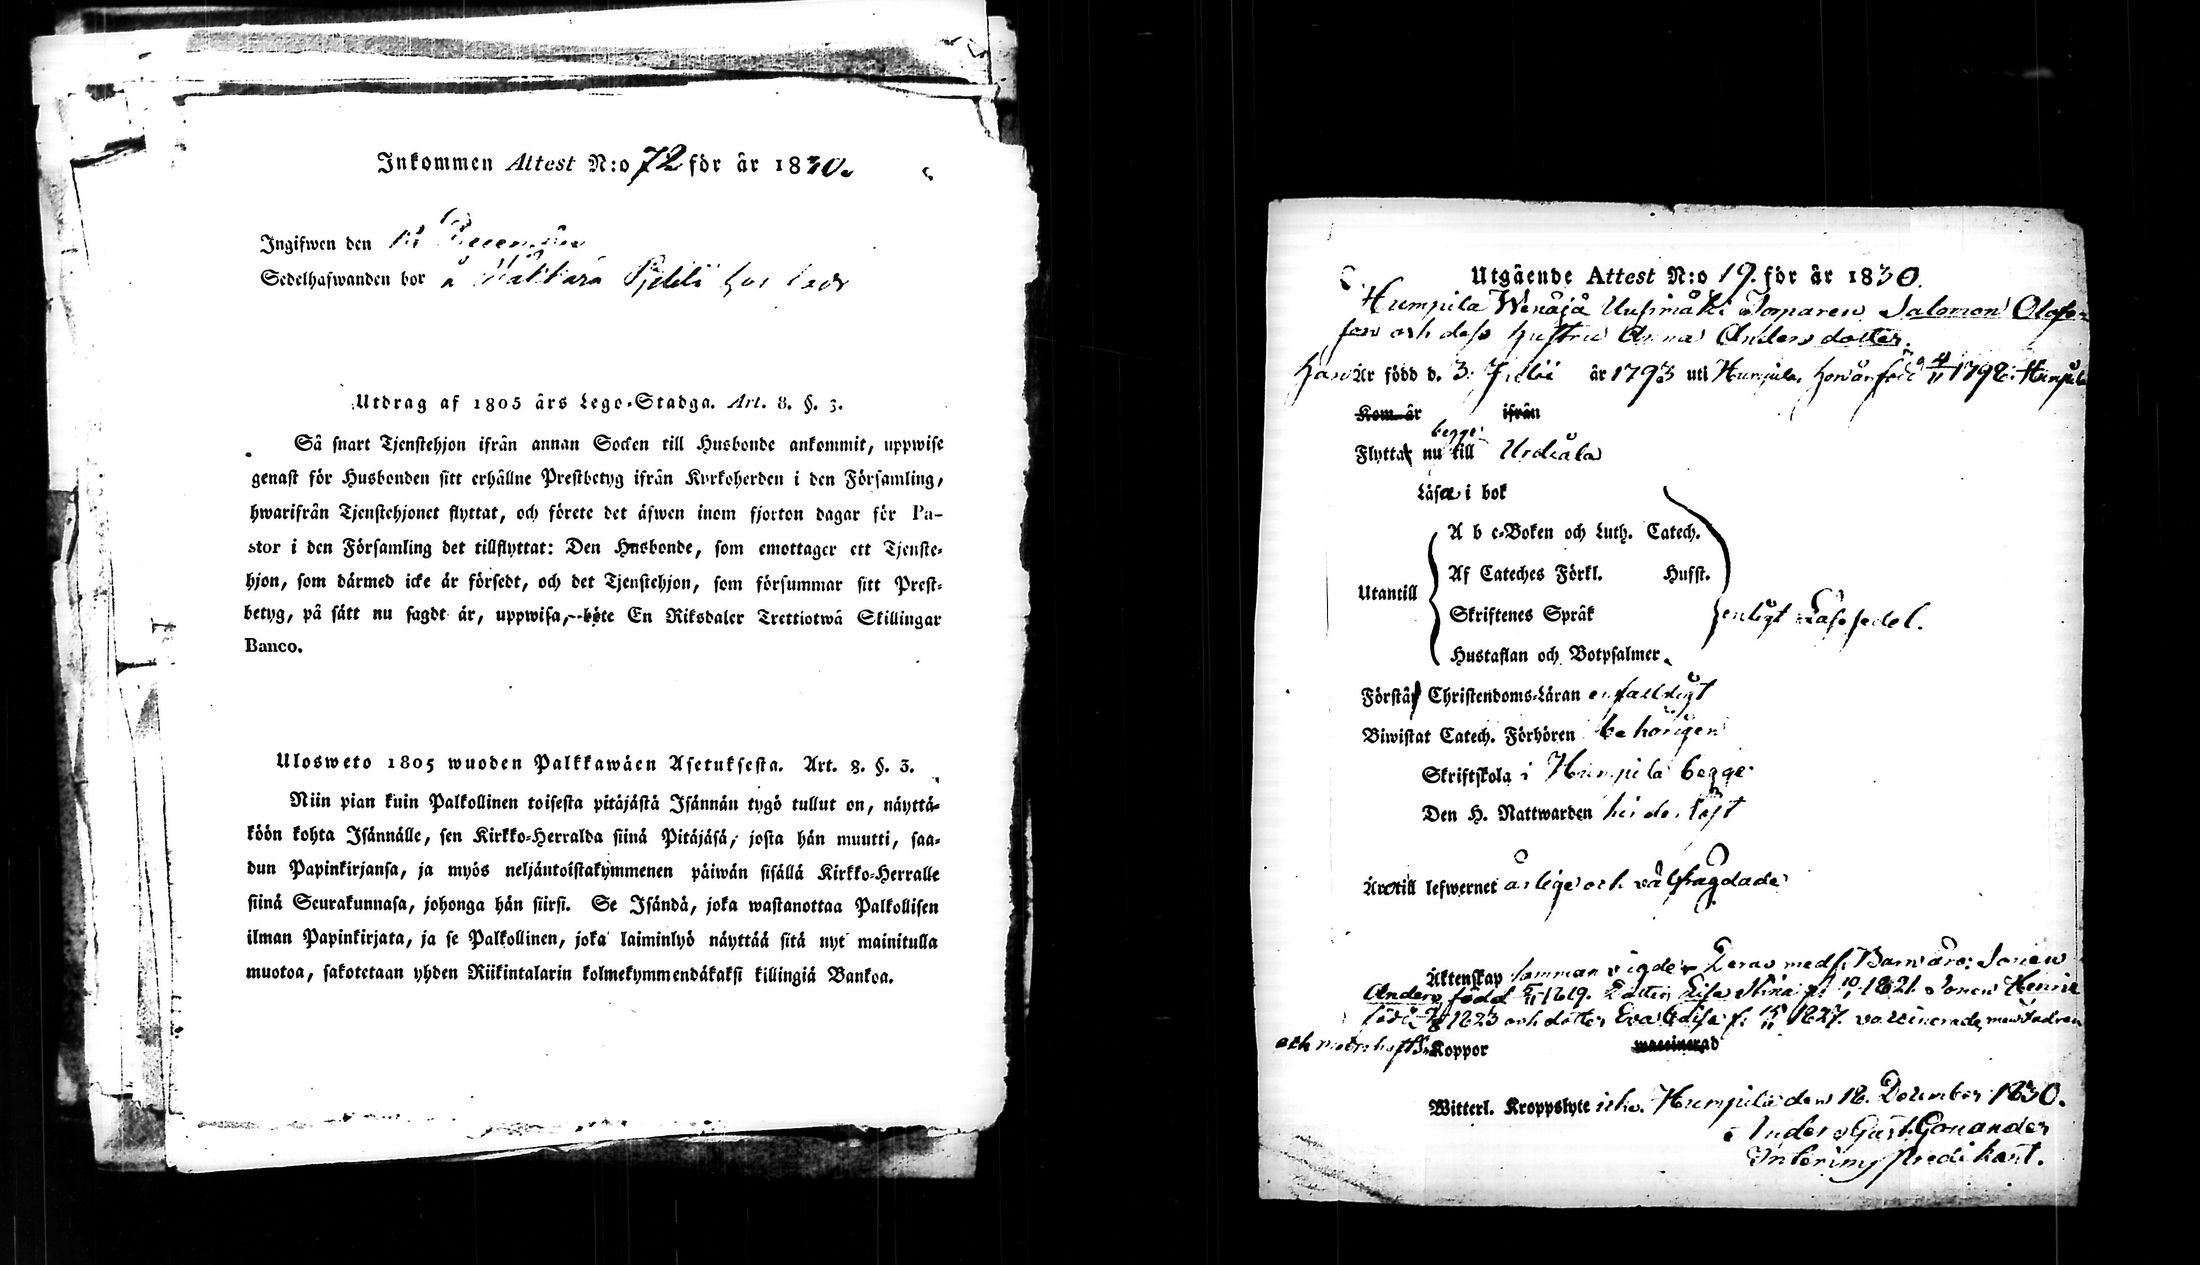 Inkommen Attest N:o 72 för år 1830.
Ingifwen den 18 December
Sedelhafwanden bor å
Utdrag af 1805 års Lego-Stadga. Art. 8. §. 3.
Så snart Tjenstehjon ifrån annan Socken till Husbonde ankommit, uppwise
genast för Husbonden sitt erhållne Prestbetyg ifrån Kyrkoherden i den Församling,
hwarifrån Tjenstehjonet flyttat, och förete det äfwen inom fjorton dagar för Pa-
stor i den Församling det tillflyttat: Den Husbonde, som emottager ett Tjenste-
hjon, som därmed icke är försedt, och det Tjenstehjon, som försummar sitt Prest-
betyg, på sätt nu sagdt är, uppwisa, böte En Riksdaler Trettiotwå Skillingar
Banco.
Ulosweto 1805 wuoden Palkkawäen Asetuksesta. Art. 8. §. 3.
Niin pian kuin Palkollinen toisesta pitäjästä Isännän tygö tullut on, näyttä-
köön kohta Isännälle, sen Kirkko-Herralda siinä Pitäjäsä, josta hän muutti, saa-
dun Papinkirjansa, ja myös neljäntoistakymmenen päiwän sisällä Kirkko-Herralle
siinä Seurakunnasa, johonga hän siirsi. Se Isändä, joka wastanottaa Palkollisen
ilman Papinkirjata, ja se Palkollinen, joka laiminlyö näyttää sitä nyt mainitulla
muotoa, sakotetaan yhden Riikintalarin kolmekymmendäkaksi killingiä Bankoa.
Utgående Attest N:o 19. för år 1830.
Humpila Wenäjä Uusimäki Torparen Salomon Olofs-
son och dess hustru Anna Andersdotter.
han Är född d. 3. Julii år 1793 uti Humpila, hon är född 4/11 1798 i Humpila
Kom år ifrån
Flytta nu begge till Urdiala
Läsa i bok
A b c-Boken och Luth. Catech.
Af Cateches Förkl. Hufst.
Utantill
Skriftenes Språk
enligt Läsesedel.
Hustaflan och Botpsalmer
Förstå Christendoms-Läran enfaldigt
Biwistat Catech. Förhören behörigen
Skriftskola i Humpila begge
Den H. Nattwarden
Äro till lefwernet ärlige och välfrägdade
Äktenskap samman vigde. Deras medf. Barn äro: Sonen
Anders född 1819. Dotter Lisa Stina f. 10/1 1821. Sonen Henric
född 1823 och dotter Eva Lisa f. 15/11 1827. vaccinerade, men Fadren
och modren haft Koppor waccinerad
Witterl. Kroppslyte icke. Humpila den 18. December 1830.
Anders Gust. Gonander
Interims predikant.